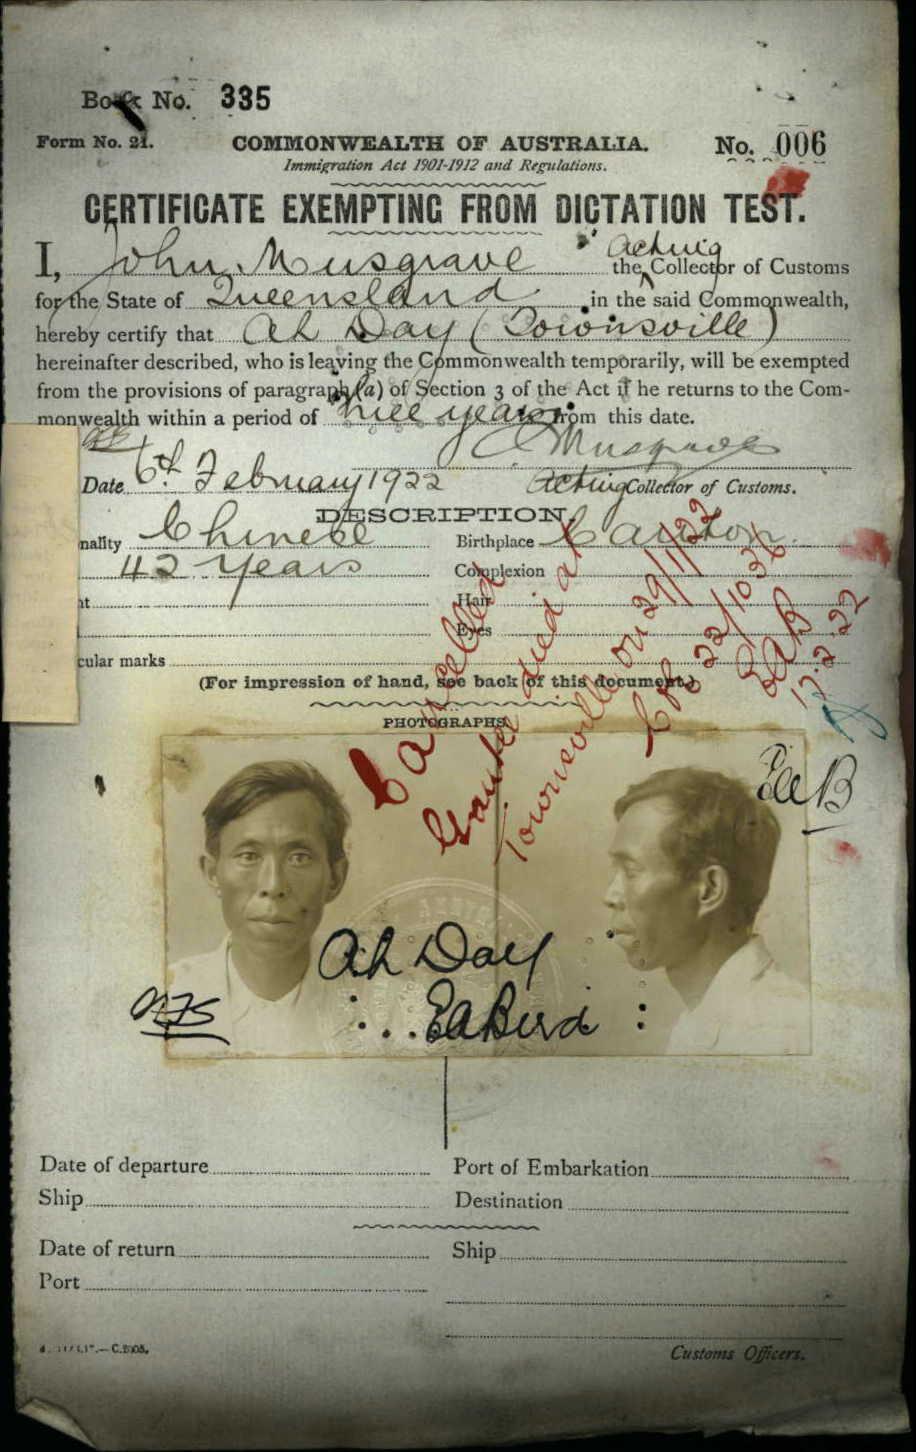 Book No. 335
Form No. 21.
COMMONWEALTH OF AUSTRALIA.
No. 006
Immigration Act 1901-1912 and Regulations.
CERTIFICATE EXEMPTING FROM DICTATION TEST.
I, John Musgrave the Acting Collector of Customs
for the State of Queensland in the said Commonwealth,
hereby certify that Ah Day (Townsville)
hereinafter described, who is leaving the Commonwealth temporarily, will be exempted
from the provisions of paragraph (a) of Section 3 of the Act if he returns to the Com-
monwealth within a period of three years from this date.
Musgrave
Date 6th February 1922
Acting Collector of Customs.
DESCRIPTION.
nality Chinese
Birthplace Canton.
42 years
Complexion
ht
Hair
Eyes
cular marks
(For impression of hand, see back of this document.)
PHOTOGRAPHS.
Cancelled
Grantee died at
Townsville on 29/1/22
C 22/1036
EaB
17.2.22
EaB
Ah Day
EaBird
Date of departure
Port of Embarkation
Ship
Destination
Date of return
Ship
Port
C.2605.
Customs Officers.